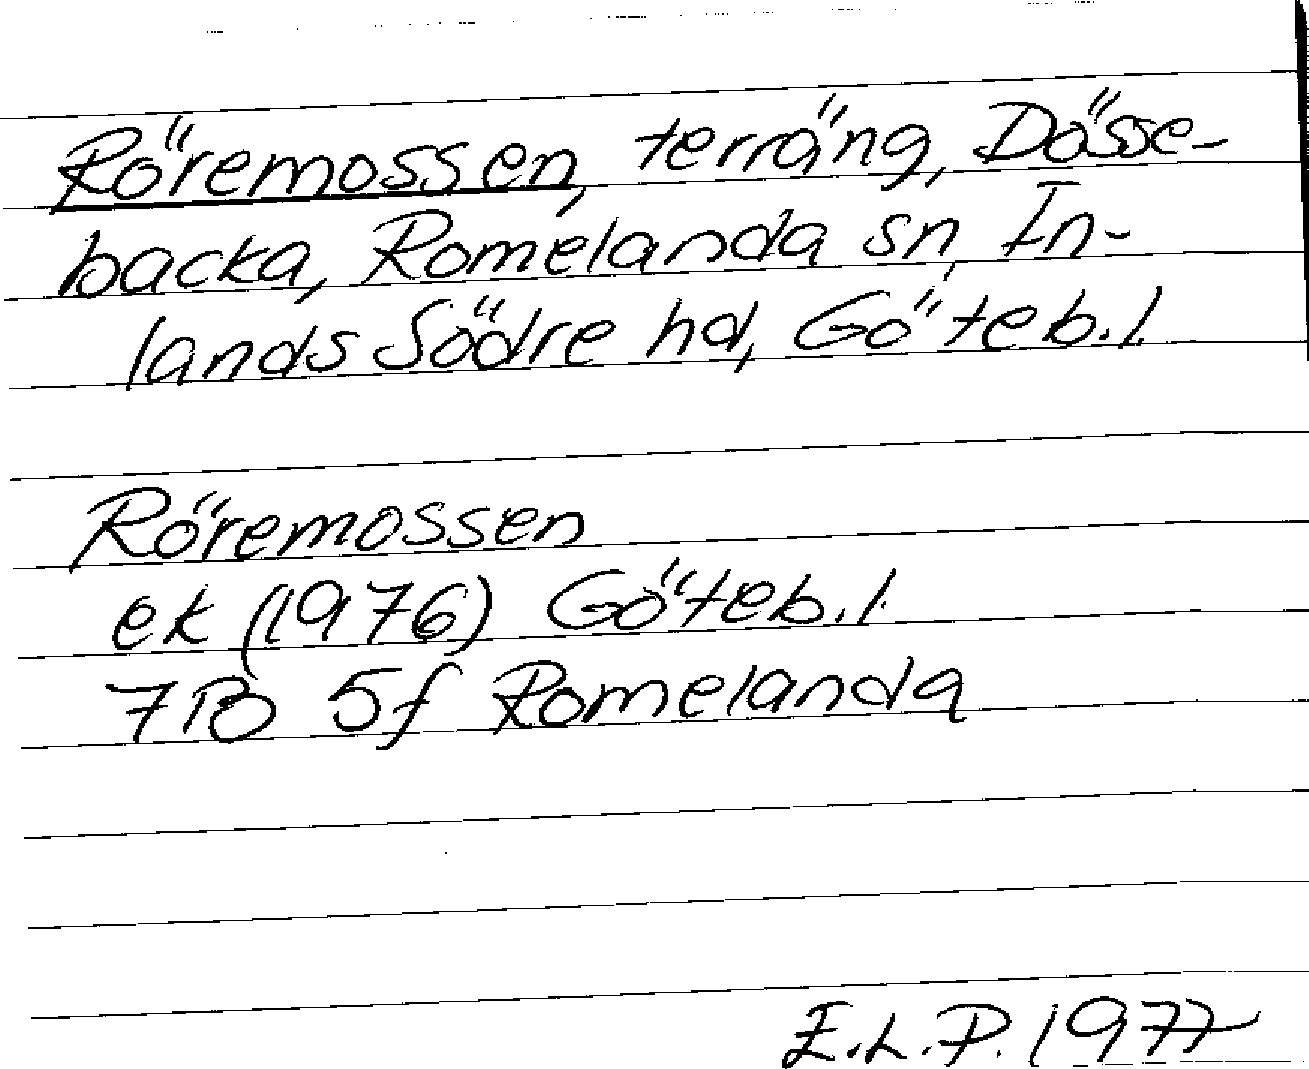 Röremossen, terräng, Dösse-
backa, Romelanda sn, In-
lands Södre hd, Göteb.l.
Röremossen
ek (1976) Göteb.l.
7B 5f Romelanda
E.L.P. 1977